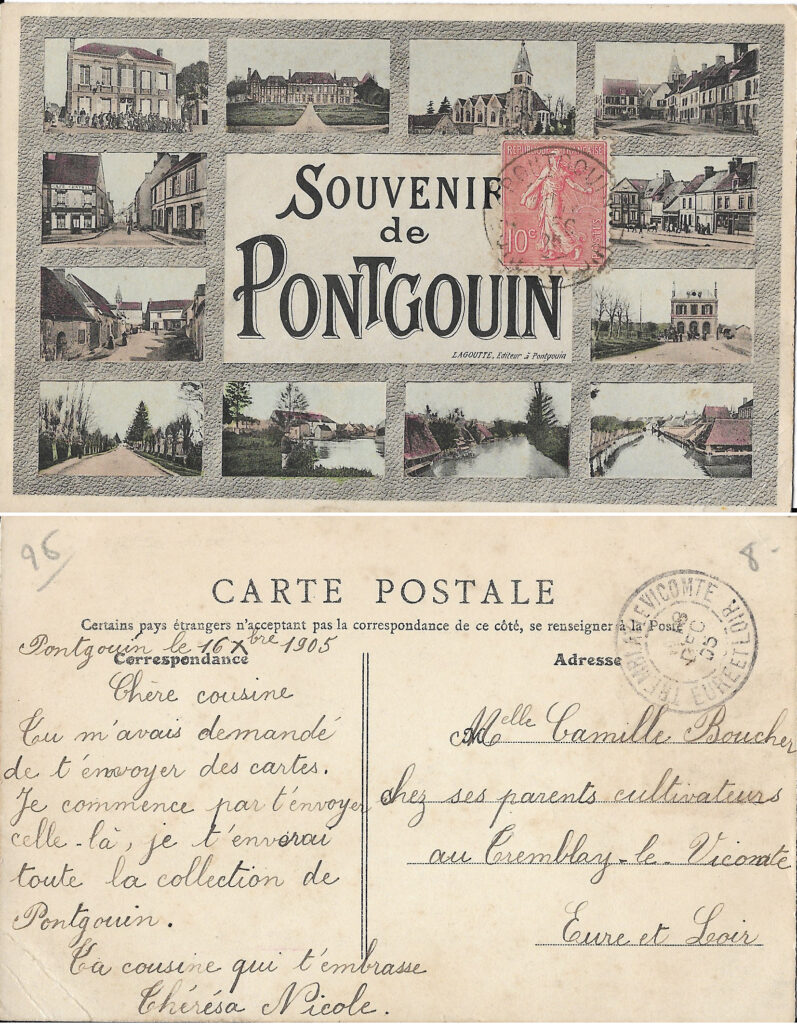 SOUVENIR
de
PONTGOUIN
LAGOUTTE, Editeur à Pontgouin
REPUBLIQUE FRANÇAISE
10c
POSTES
96
8-
CARTE POSTALE
Certains pays étrangers n'acceptent pas la correspondance de ce côté, se renseigner à la Poste
Pontgouin le 16 Xbre 1905
Correspondance
Chère cousine
Tu m'avais demandé
de t'envoyer des cartes.
Je commence par t'envoyer
celle-là, je t'enverai
toute la collection de
Pontgouin.
Ta cousine qui t'embrasse
Thérésa Nicole.
Adresse
Melle Camille Boucher
chez ses parents cultivateurs
au Tremblay-le-Vicomte
Eure et Loir
TREMBLAY LE VICOMTE
DEC
05
EURE ET LOIR